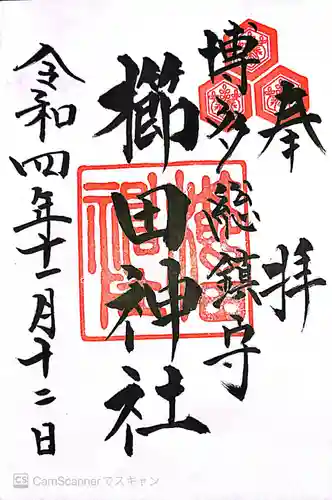 奉拝
博多総鎮守
櫛田神社
令和四年十一月十二日
CS CamScannerでスキャン